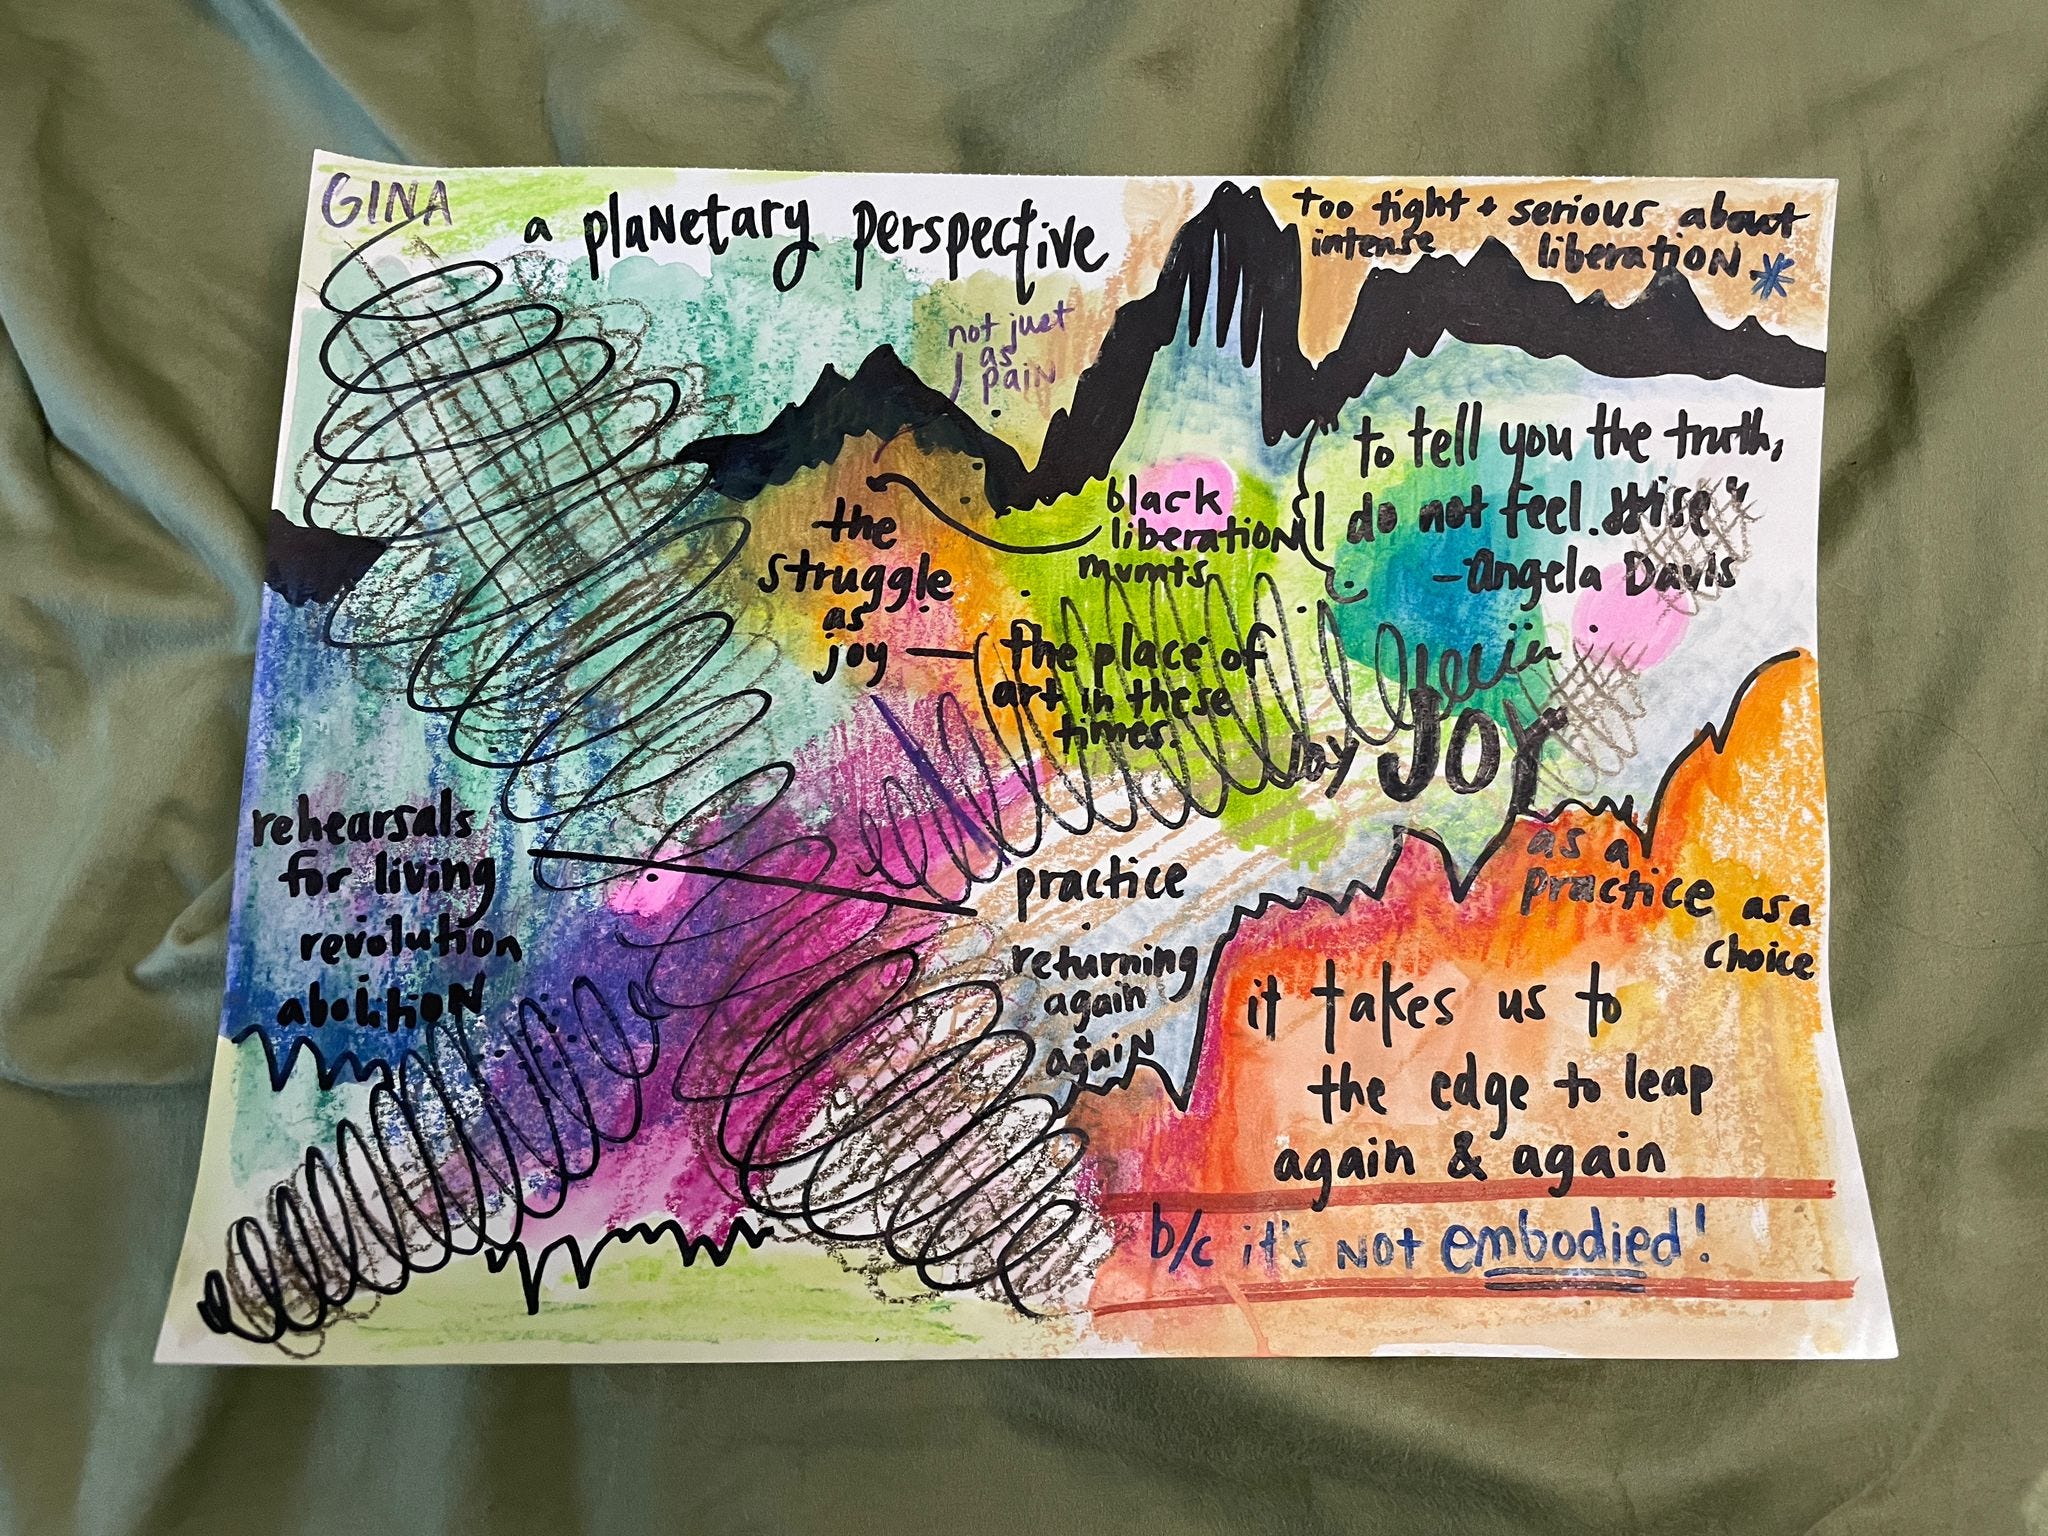 GINA
a plaNetary perspective
too tight + serious about
intense liberatioN *
not just
as
paiN
the
struggle
as
joy —
black
liberatioN
mvmts
the place of
art in these
times.
to tell you the truth,
I do not feel. wise"
- Angela Davis
joy JOY
as a
practice
as a
choice
rehearsals
for living
revolution
abolitioN
practice
returning
again
agaiN
it takes us to
the edge to leap
again & again
b/c it's NOT embodied!